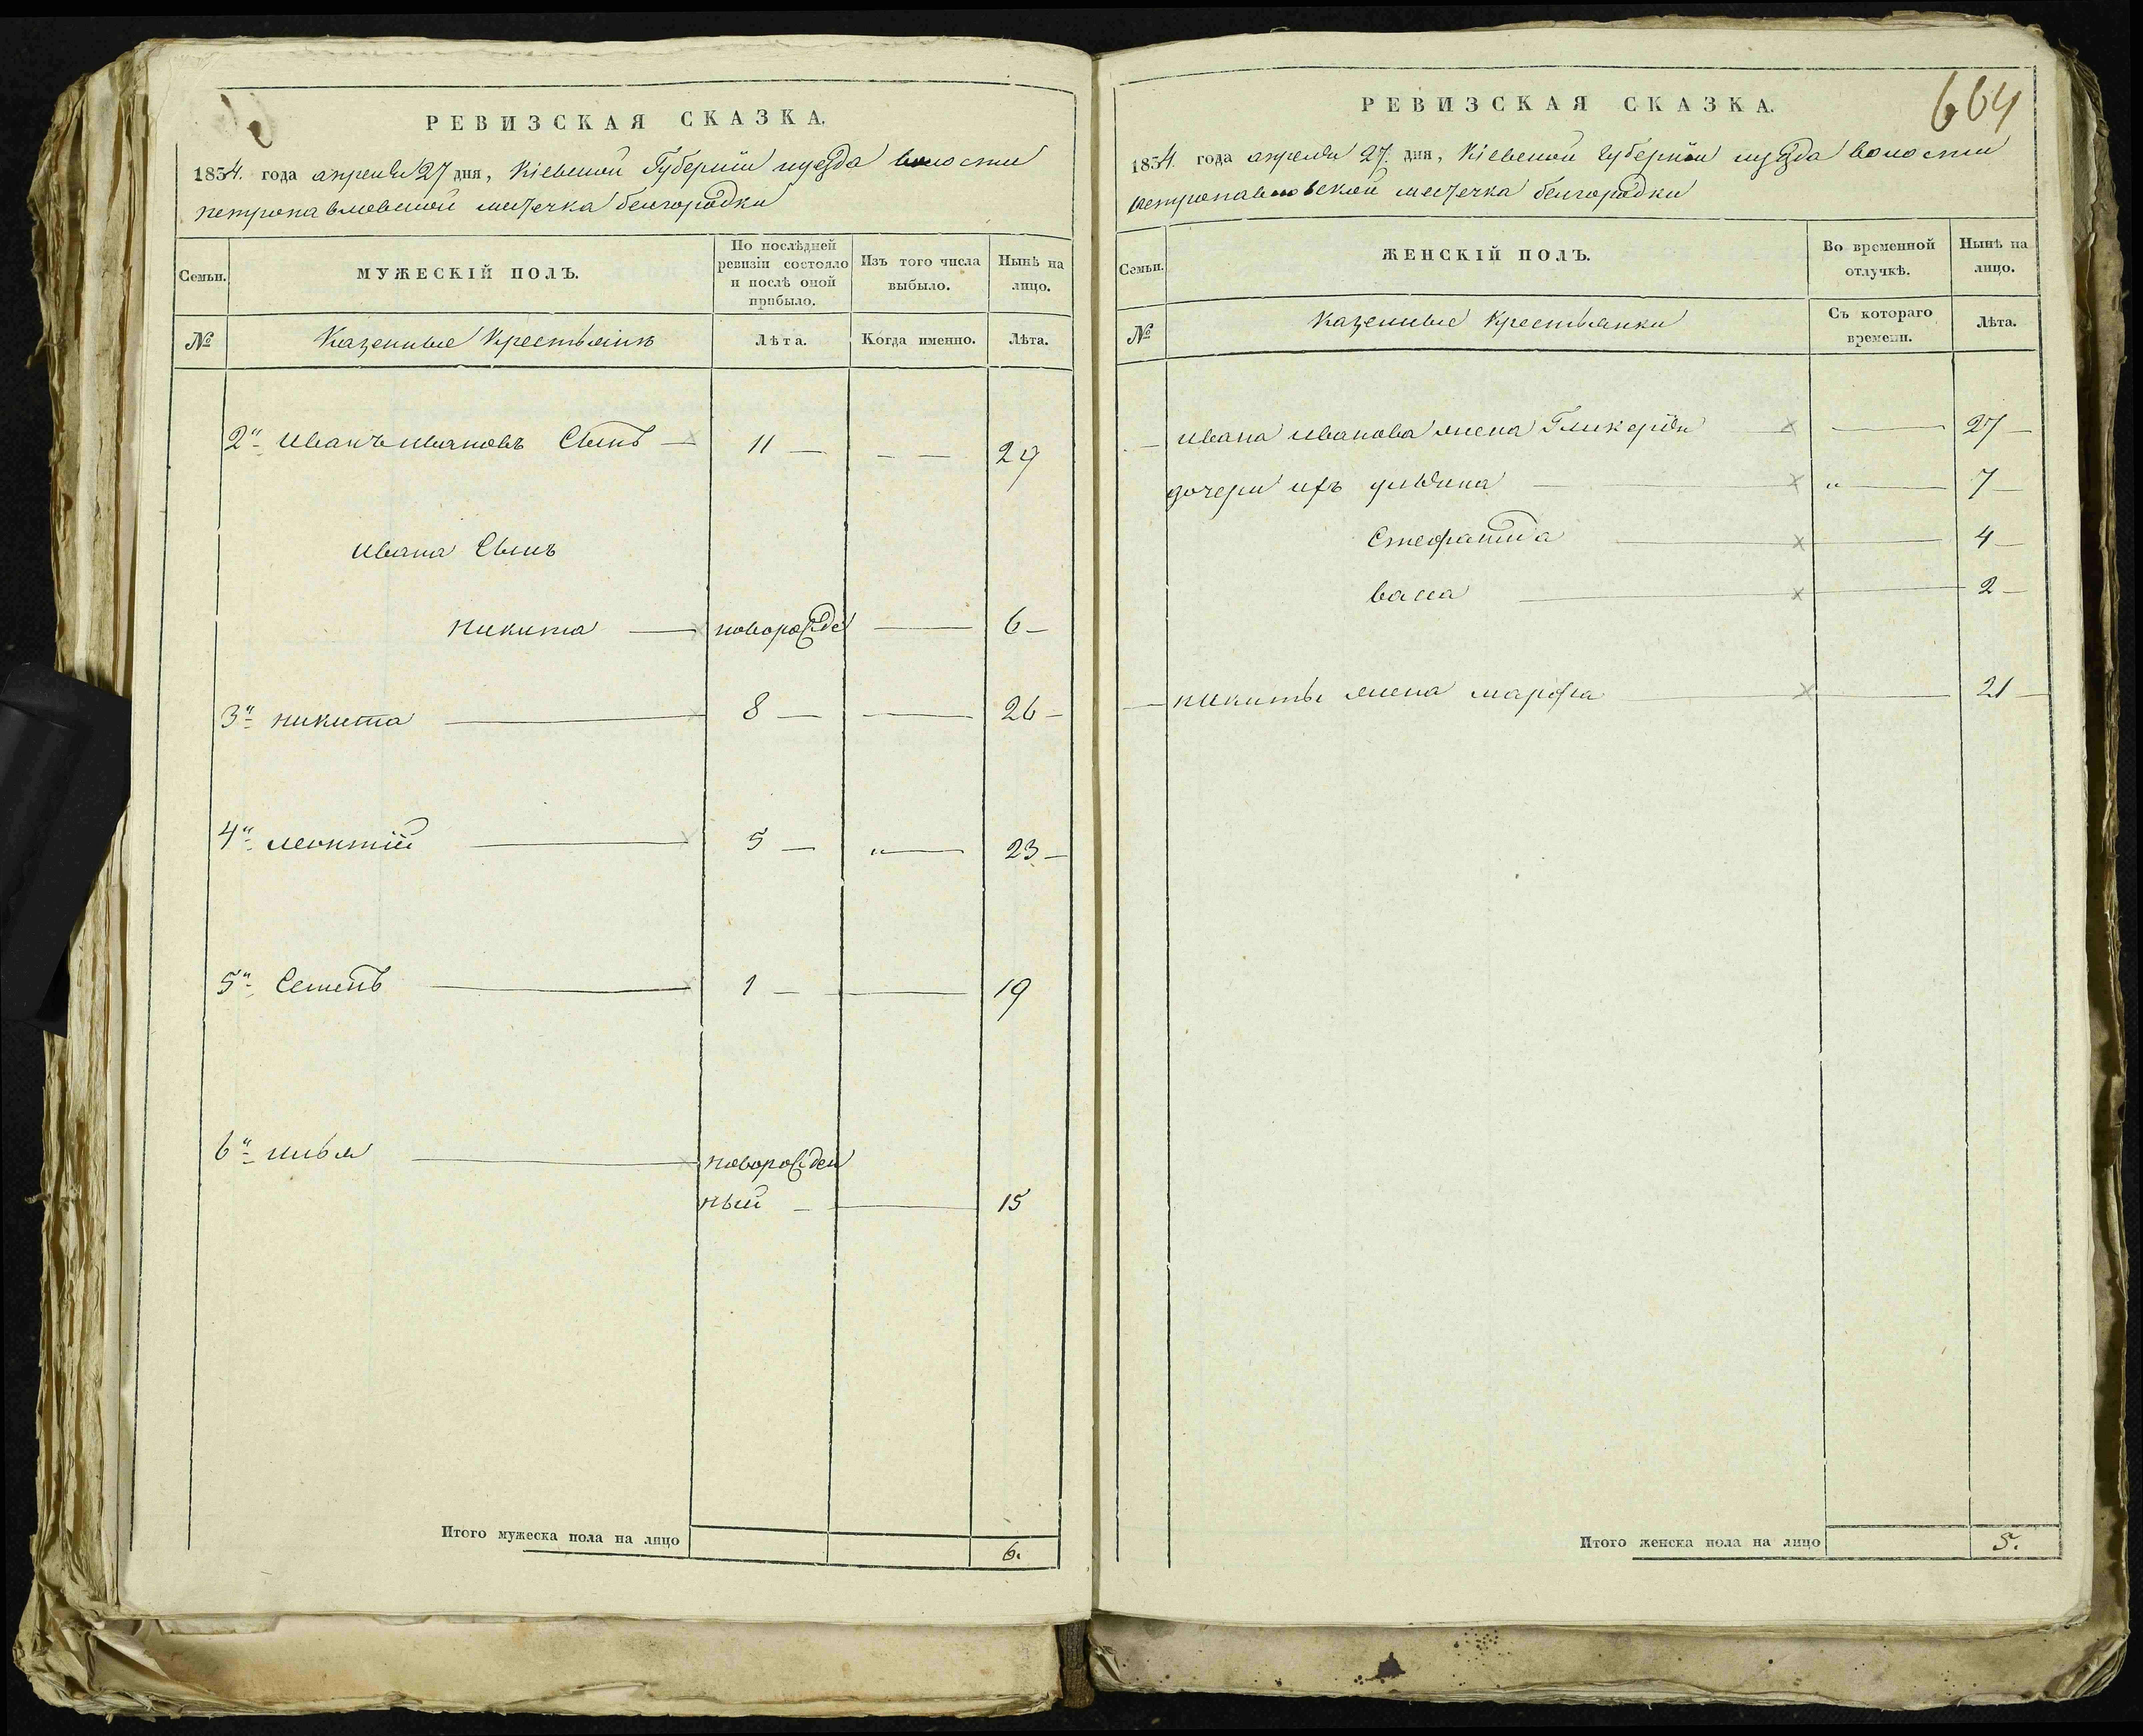 РЕВИЗСКАЯ СКАЗКА.
1834. года апреля 27 дня, Кіевской Губерніи и уезда волости
петропавловской месҭечка белгородки
Семьи.
МУЖЕСКІЙ ПОЛЪ.
По послѣдней ревизіи состояло и послѣ оной прибыло.
Изъ того числа выбыло.
Нынѣ на лицо.
№
Казенные Крестьянѣ
Лѣта.
Когда именно.
Лѣта.
2й Иванъ Ивановъ Сынъ — 11 — — — 29
Ивана Сынъ
никита — новорожде — 6 —
3й никита — 8 — — 26 —
4й леонтій — 5 — „ — 23 —
5й Семенъ — 1 — — 19
6й илья — новорожден
ный — — 15
Итого мужеска пола на лицо 6.
664
РЕВИЗСКАЯ СКАЗКА.
1834. года апреля 27. дня, Кіевской губерніи и уезда волости
петропавловской месточка белгородки
Семьи.
ЖЕНСКІЙ ПОЛЪ.
Во временной отлучкѣ.
Нынѣ на лицо.
№
Казенные Крестьянки
Съ котораго времени.
Лѣта.
— Ивана Иванова жена Гликерія — — 27 —
дочери ихъ ульяна — „ — 7 —
Стефанида — — 4 —
васса — — 2 —
— никиты жена марфа — — 21 —
Итого женска пола на лицо 5.